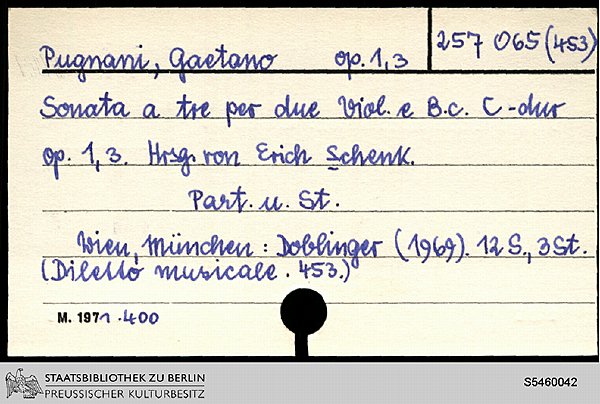 Pugnani, Gaetano op. 1,3
257 065 (453)
Sonata a tre per due Viol. e B.c. C-dur
op. 1, 3. Hrsg. von Erich Schenk.
Part. u. St.
Wien, München: Doblinger (1969). 12 S., 3 St.
(Diletto musicale. 453.)
M. 1971 .400
STAATSBIBLIOTHEK ZU BERLIN
PREUSSISCHER KULTURBESITZ
S5460042